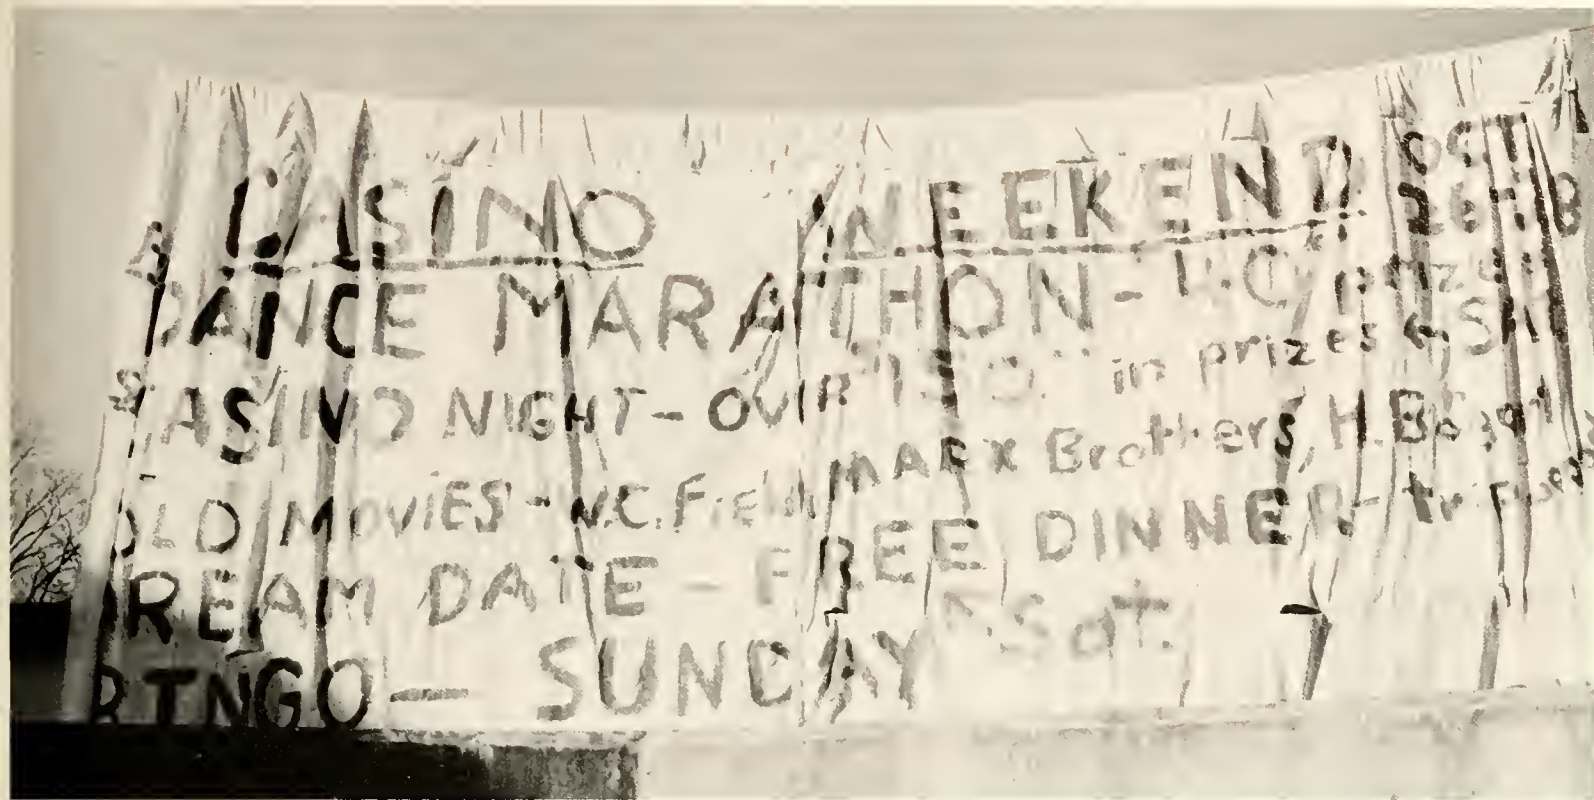 CASINO WEEKEND OCT
DANCE MARATHON-
CASINO NIGHT- OVER in prizes
OLD MOVIES - W.C. Fields MARX Brothers, H. Bogart
DREAM DATE - FREE DINNER-
Sat.
RINGO - SUNDAY